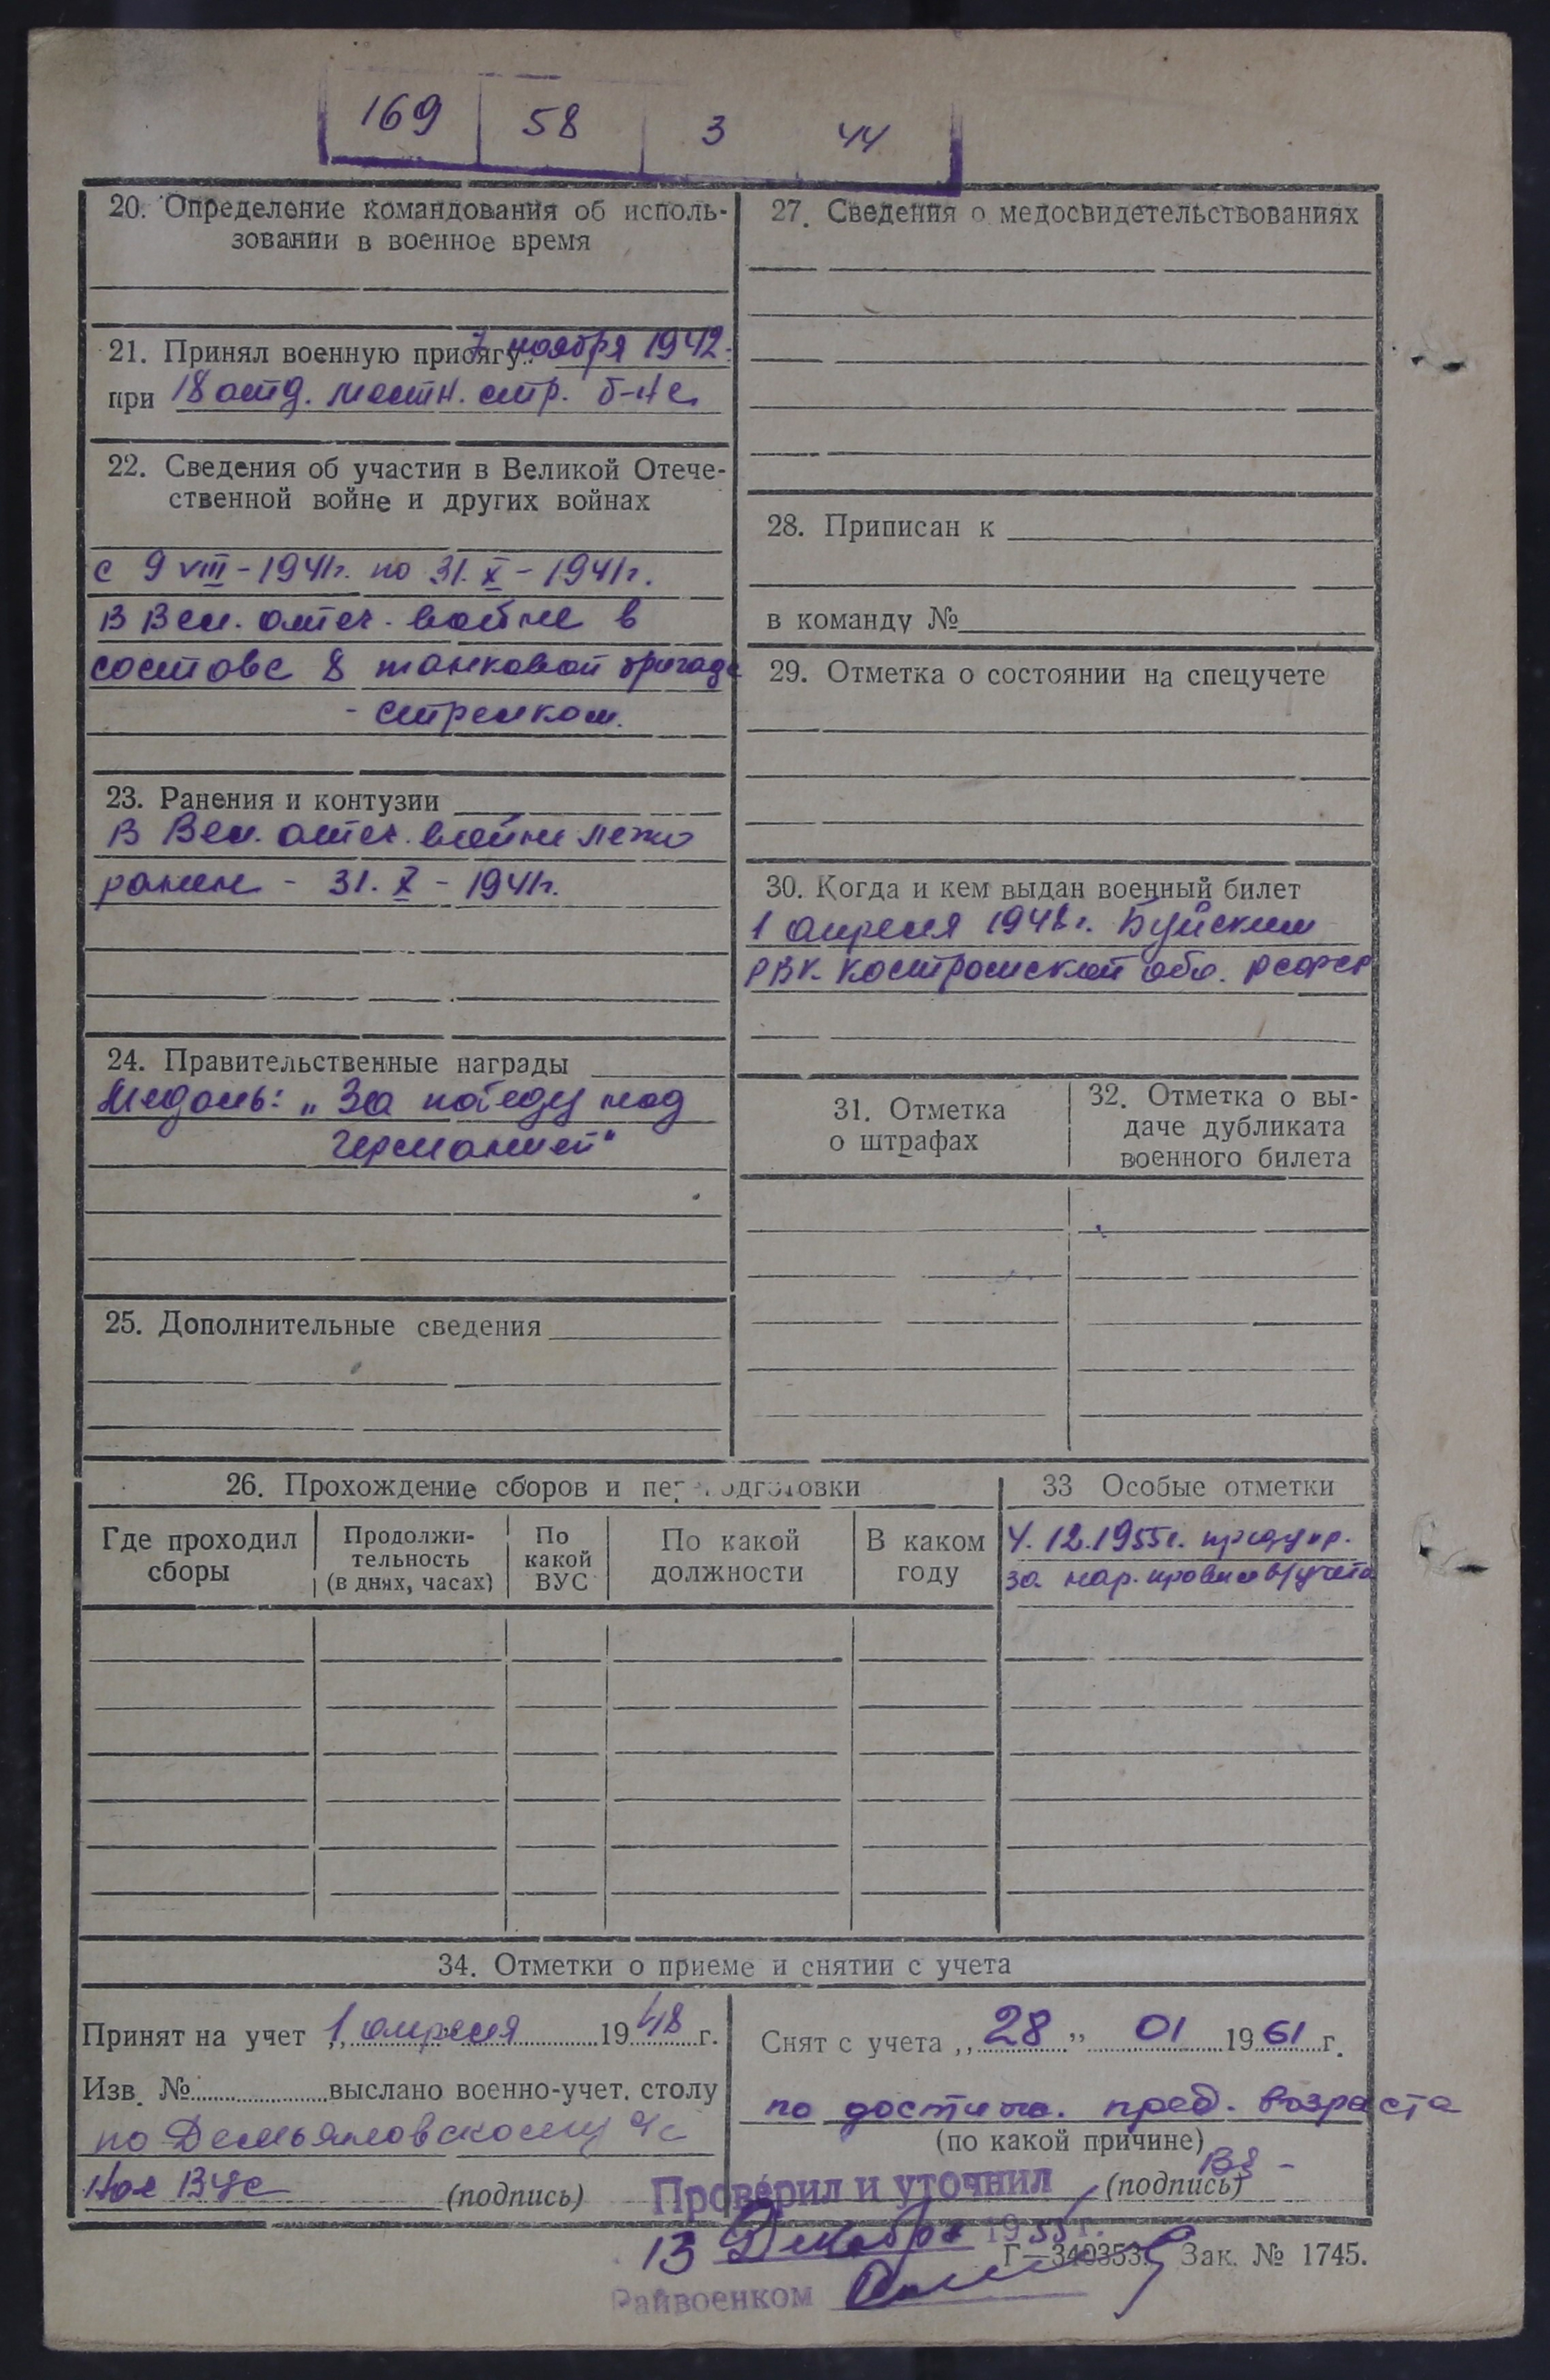 169 58 3 44
20. Определение командования об исполь-
зовании в военное время
21. Принял военную присягу 7 ноября 1942
при 18 отд. местн. стр. б-не
22. Сведения об участии в Великой Отече-
ственной войне и других войнах
с 9 VIII - 1941г. по 31. X - 1941г.
в Вел. отеч. войне в
составе 8 танковой бригаде
- стрелком.
23. Ранения и контузии
В Вел. отеч. войне легко
ранен - 31. X - 1941г.
24. Правительственные награды
Медаль: „За победу над
Германией"
25. Дополнительные сведения
27. Сведения о медосвидетельствованиях
28. Приписан к
в команду №
29. Отметка о состоянии на спецучете
30. Когда и кем выдан военный билет
1 апреля 1948г. Буйским
РВК. Костромской обл. РСФСР
31. Отметка
о штрафах
32. Отметка о вы-
даче дубликата
военного билета
26. Прохождение сборов и переподготовки
Где проходил
сборы
Продолжи-
тельность
(в днях, часах)
По
какой
ВУС
По какой
должности
В каком
году
33 Особые отметки
4. 12. 1955г. предупр.
за нар. правил в/учета
34. Отметки о приеме и снятии с учета
Принят на учет „1 апреля 1948 г.
Изв. № выслано военно-учет. столу
по Демьяновскому с/с
Нач ВУС (подпись)
Снят с учета „28" 01 1961 г.
по достиж. пред. возраста
(по какой причине)
(подпись)
Проверил и уточнил
13 Декабря 1955 г.
Г—340353. Зак. № 1745.
Райвоенком